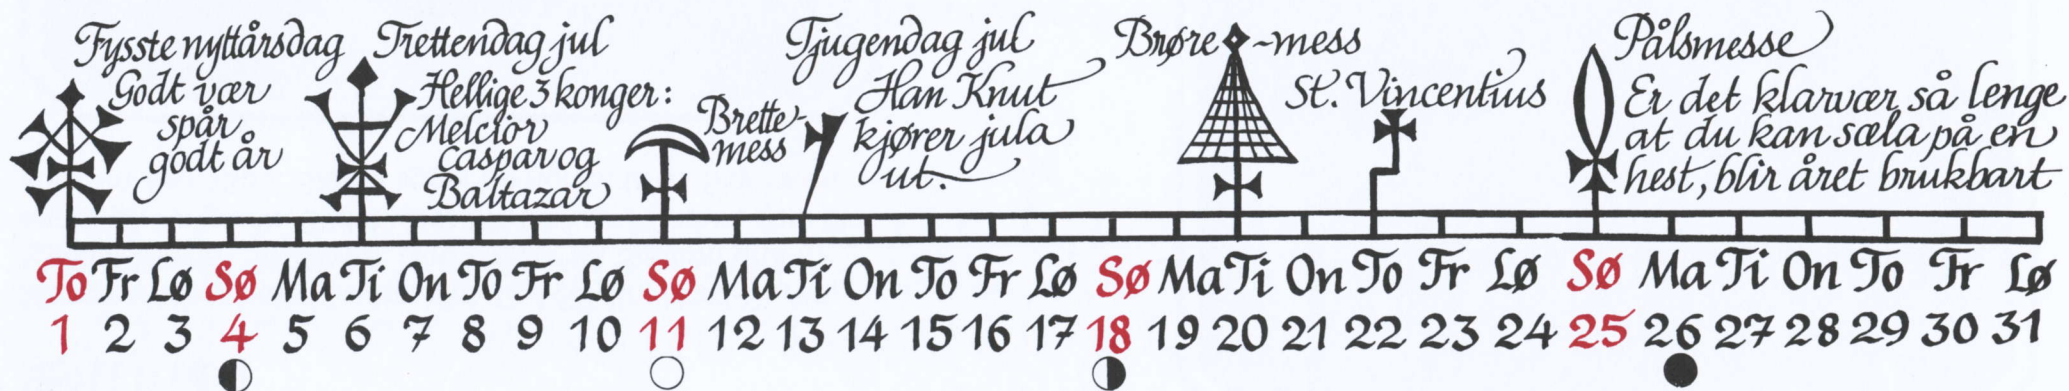 Fysste nyttårsdag
Godt vær
spår
godt år
Trettendag jul
Hellige 3 konger:
Melcior
Caspar og
Baltazar
Brette-
mess
Tjugendag jul
Han Knut
kjører jula
ut.
Brøre-mess
St. Vincentius
Pålsmesse
Er det klarvær så lenge
at du kan sæla på en
hest, blir året brukbart
To Fr Lø Sø Ma Ti On To Fr Lø Sø Ma Ti On To Fr Lø Sø Ma Ti On To Fr Lø Sø Ma Ti On To Fr Lø
1 2 3 4 5 6 7 8 9 10 11 12 13 14 15 16 17 18 19 20 21 22 23 24 25 26 27 28 29 30 31